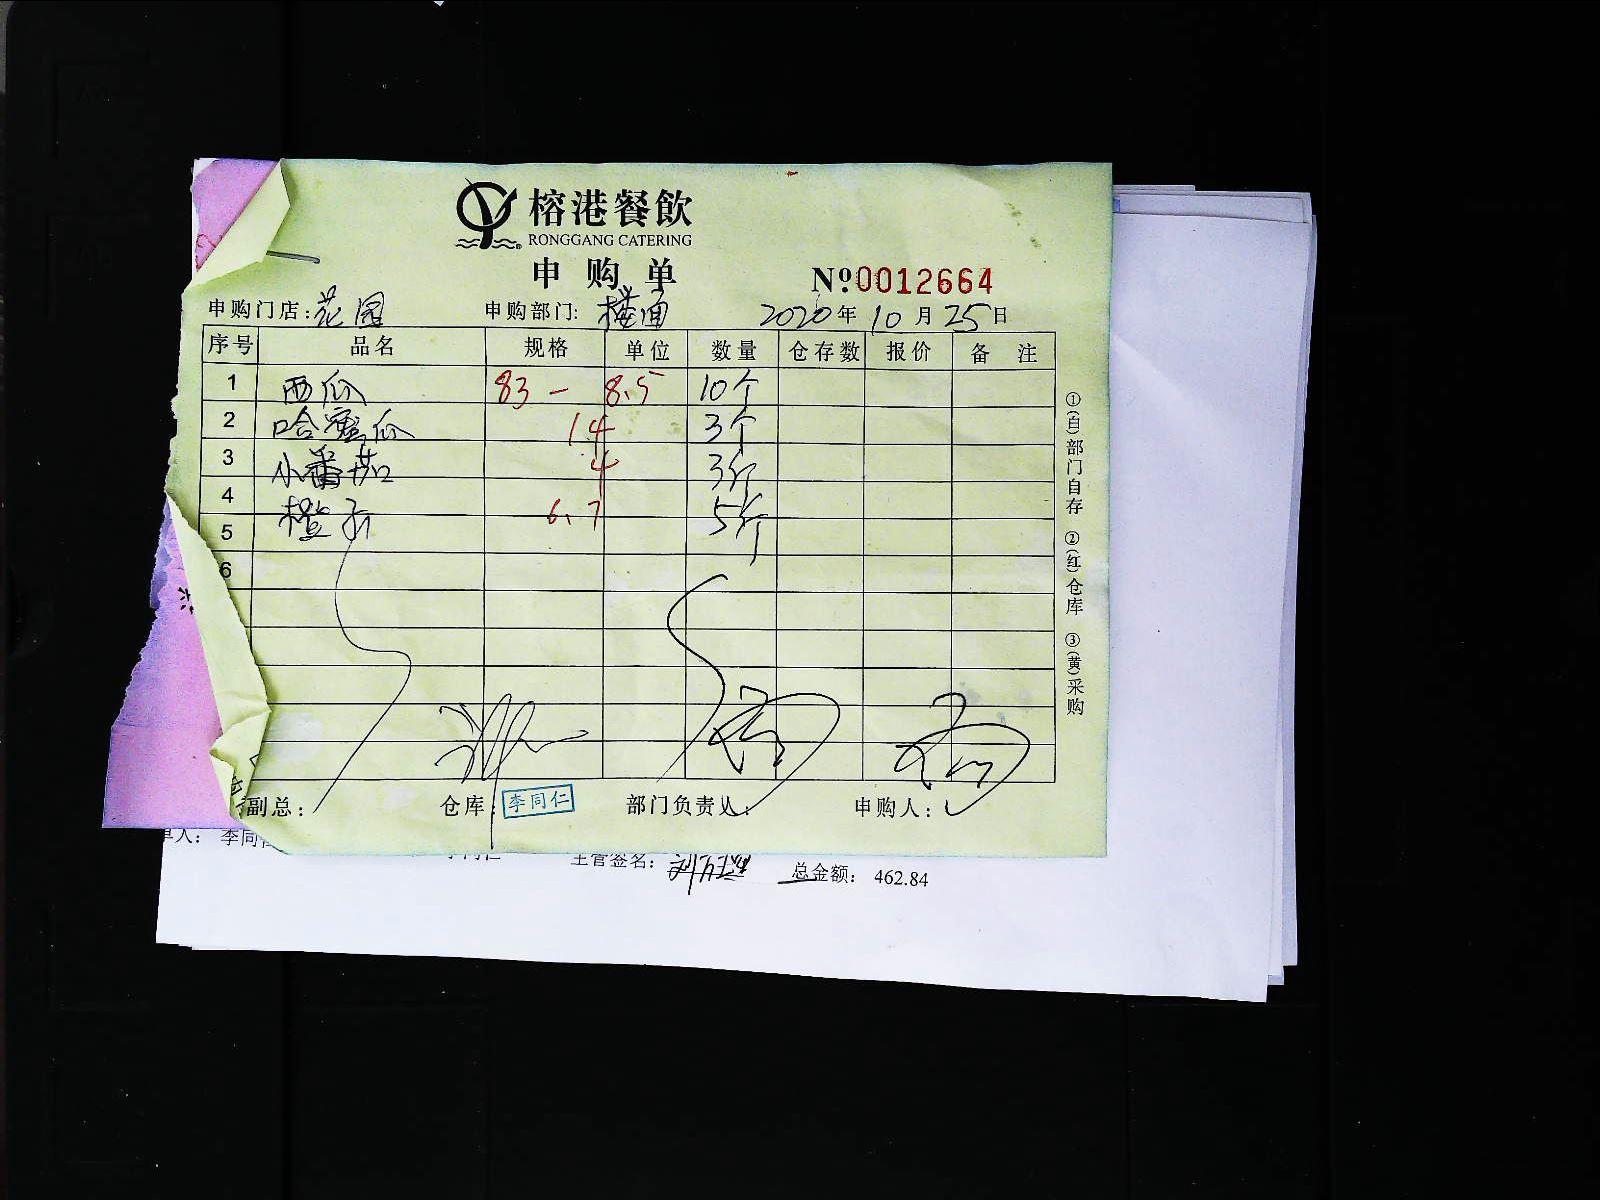 榕港餐飲
RONGGANG CATERING
申购单
№0012664
申购门店:花园 申购部门:楼面 2020年10月25日
序号 品名 规格 单位 数量 仓存数 报价 备注
1 西瓜 83 - 8.5 10个
2 哈蜜瓜 14 3个
3 小番茄 4 3斤
4 橙子 6.7 5斤
5
6
①(白)部门自存 ②(红)仓库 ③(黄)采购
副总: 仓库:李同仁 部门负责人: 申购人:
单人: 李同仁 主管签名: 总金额: 462.84